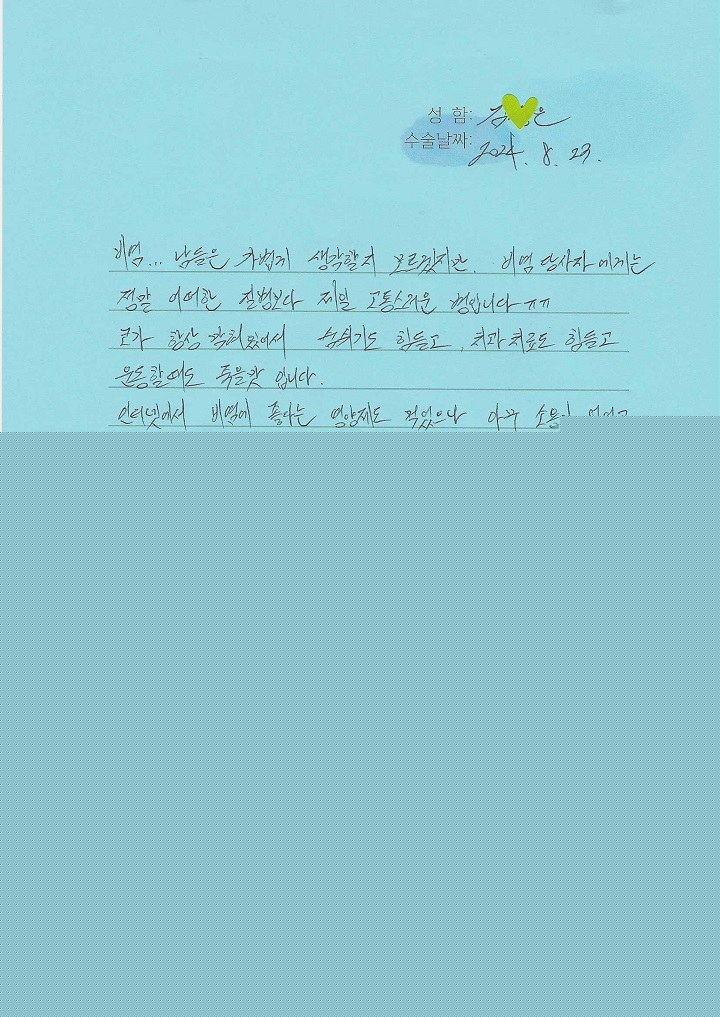 성 함:
수술날짜: 2024. 8. 23.
비염... 남들은 가볍게 생각할지 모르겠지만. 비염 당사자에게는
정말 어떠한 질병보다 제일 고통스러운 병입니다 ㅠㅠ
코가 항상 막혀있어서 숨쉬기도 힘들고, 치과치료도 힘들고
운동할때도 죽을맛 입니다.
인터넷에서 비염에 좋다는 영양제도 먹었으나 아무